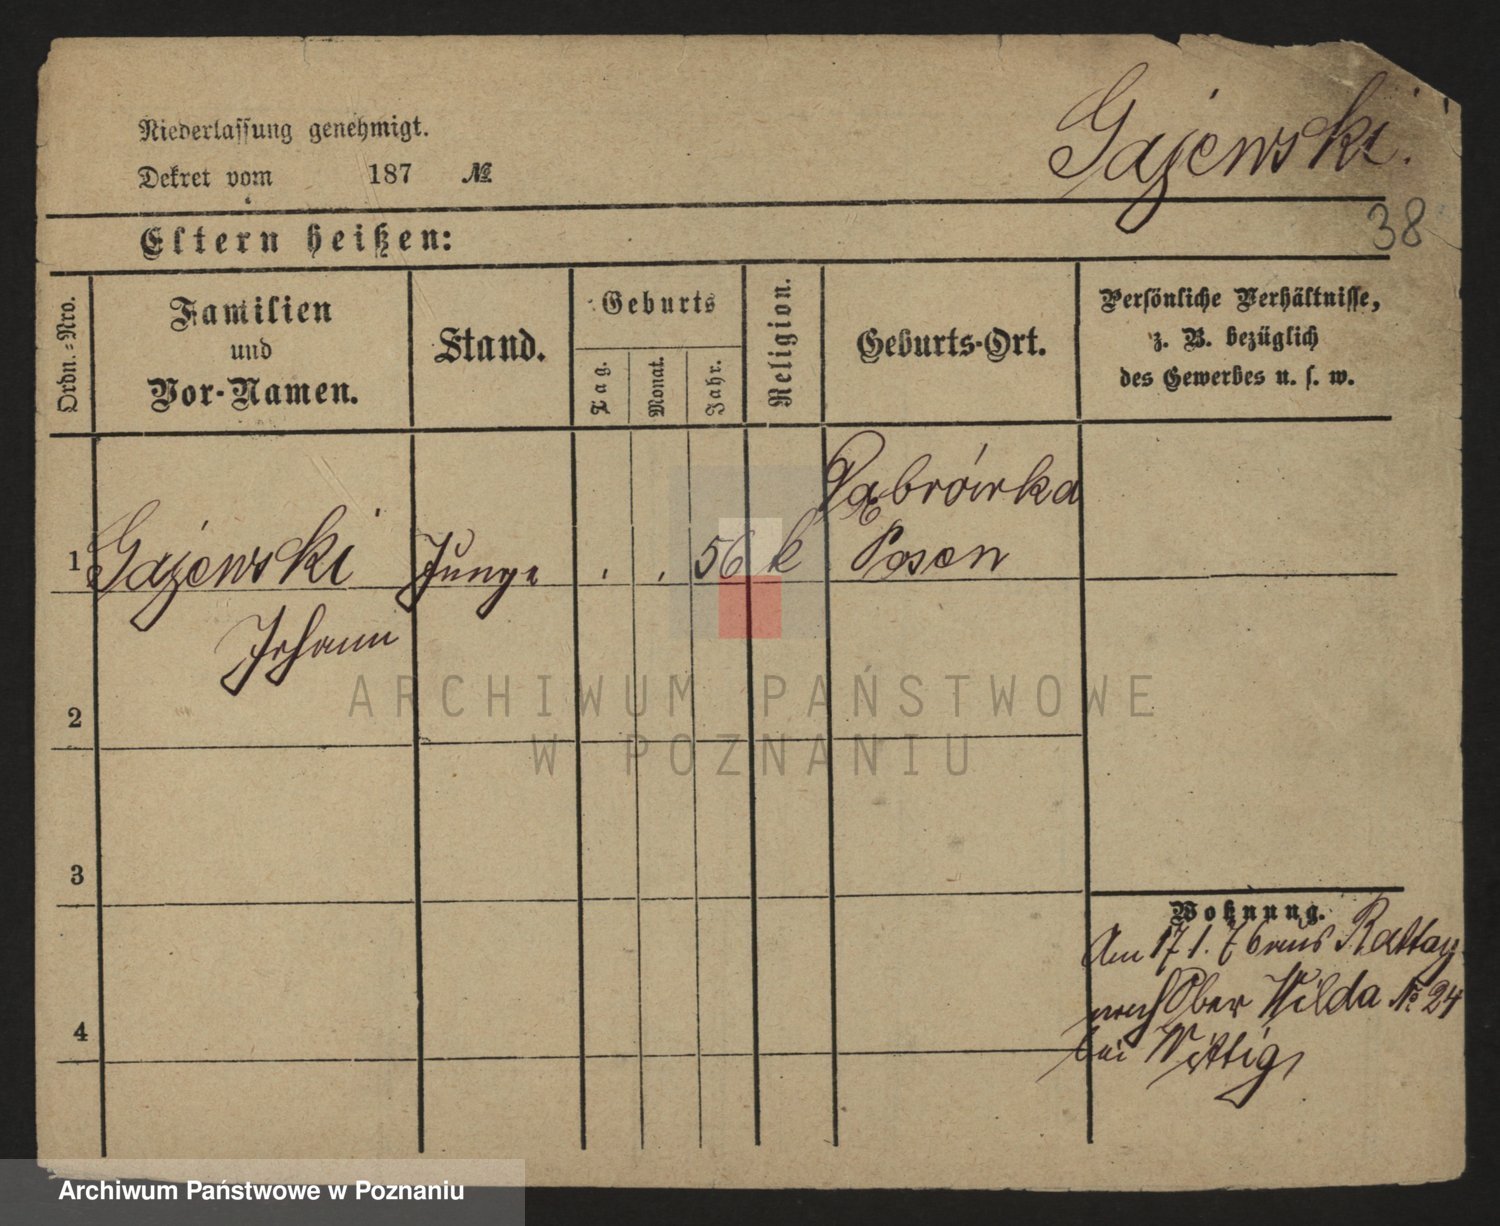 Gajewski.
Niederlassung genehmigt.
Dekret vom 187 №
38
Eltern heißen:
Ordn.-Nro.
Familien
und
Vor-Namen.
Stand.
Geburts
Tag.
Monat.
Jahr.
Religion.
Geburts-Ort.
Persönliche Verhältnisse,
z. B. bezüglich
des Gewerbes u. s. w.
1 Gajewski Junge . . 56 k Dąbrówka
Posen
Johann
2
3
4
Wohnung.
Am 17 1. 76 aus Rattay
nach Ober Wilda № 24
bei Wittig
ARCHIWUM PAŃSTWOWE
W POZNANIU
Archiwum Państwowe w Poznaniu